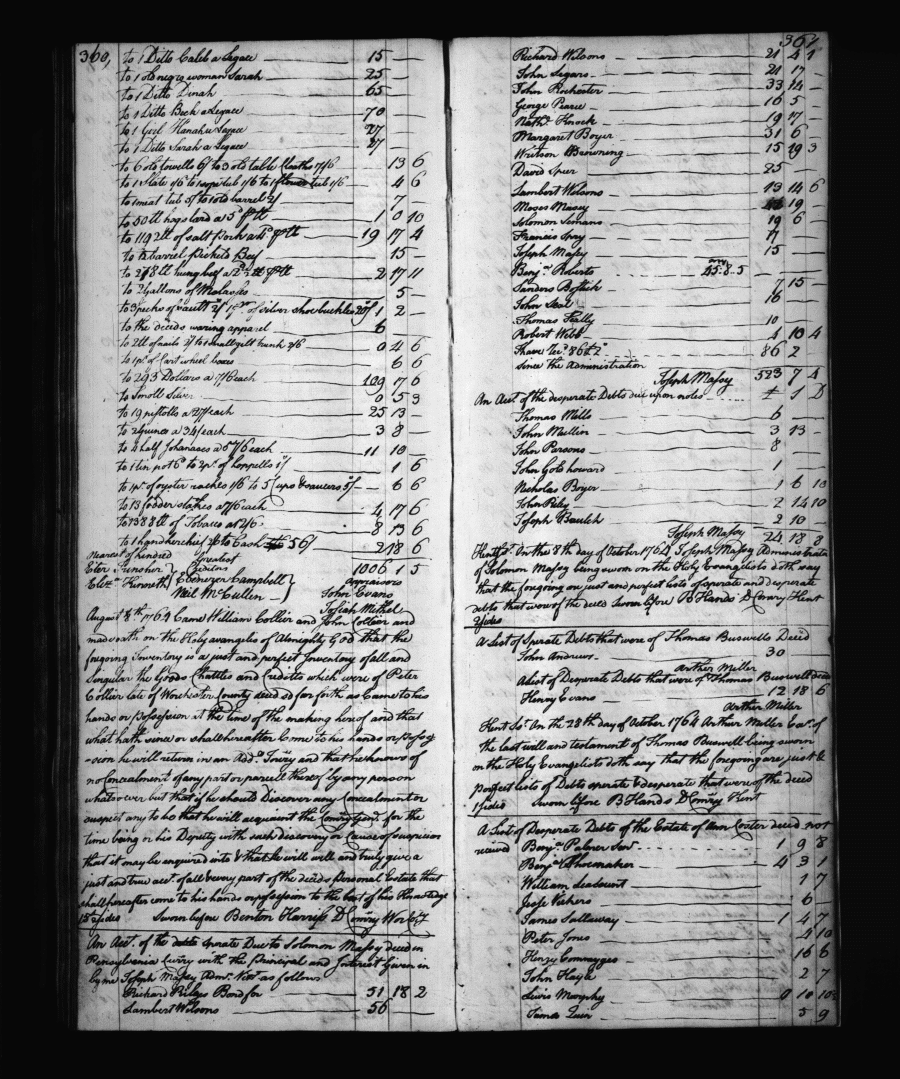 360,
to 1 Ditto Caleb a Legace 15 — —
to 1 old negro woman Sarah 25 — —
to 1 Ditto Dinah 65 — —
to 1 Ditto Beck a Legace 70 — —
to 1 Girl Hanah a Legace 27 — —
to 1 Ditto Sarah a Legace 27 — —
to 6 old towells 6/ to 3 old table Cloaths 7/6 13 6
to 1 Slate 1/6 to 1 soape tub 1/6 to 1 flower tub 1/6 4 6
to 1 meal tub 5/ to 1 old barrel 2/ 7 —
to 50 lb hogs lard a 5d p lb 1 0 10
to 1192 lb of salt Pork a 4d p lb 19 17 4
to ½ barrel Pickeld Beef 15 —
to 278 lb hung beef a 2½d p lb 2 17 11
to 2 Gallons of Molasses 5 —
to 3 pecks of sault 2/ 1 pr of silver shoe buckles 20/ 1 2 —
to the deceds waring apparel 6 — —
to 2 lb of nails 2/ to 1 small gilt trunk 2/6 0 4 6
to 1 pr of Cart wheel boxes 6 6
to 293 Dollars a 7/6 each 109 17 6
to Small Silver 0 5 3
to 19 pistolls a 27/ each 25 13 —
to 2 guinea a 34/ each 3 8 —
to 4 half Johanases a 57/6 each 11 10 —
to 1 tin pot 6d to 2 pr of hoppells 1/ 1 6
to 1 pr of oyster raches 1/6 to 5 Cups & saucers 5/ 6 6
to 13 fodder stakes a 7/6 each 4 17 6
to 1388 lb of Tobacco at 2/6 8 13 6
to 1 handkerchief 2/6 to Cash 56/ 2 18 6
Nearest of kindred Greatest Creditors 1006 1 5
Ebenezer Campbell Appraisors
Elizth Kenneth Neil McCullen John Evans
Josiah Mithel
August 8th 1764 Came William Collier and John Collier and
made oath on the Holy evangeles of Almighty God that the
foregoing Inventory is a just and perfect Inventory of all and
Singular the Goods Chattles and Credetts which were of Peter
Collier late of Worchester County deced so far forth as Came to his
hands or possession at the time of the making hereof and that
what hath since or shall hereafter Come to his hands or posses
-sion he will return in an Add. Invry and that he knows of
no Concealment of any part or parcell thereof by any person
whatsoever but that if he should Discover any Concealment or
suspect any to be that he will acquaint the Comry Genl. for the
time being or his Deputy with such discovery or Cause of suspicion
that it may be enquired into & that he will well and truly give a
just and true acct. of all & every part of the deceds Personal Estate that
shall hereafter come to his hands or possession to the best of his Knowledge
Sworn before Benton Harriss D Comry Wor Cty
An Acct. of the debts Sperate Due to Solomon Massy deced in
Pensylvania Curry with the Principal and Interest Given in
by me Joseph Massy Admr. Viz as follows
Richard Rileys Bond for 51 18 2
Lambert Wilsons 56 — —
361
Richard Wilsons 21 4 1
John Segars 21 17 —
John Rochester 33 14 —
George Pearce 16 5 —
Nathl. Knock 19 17 —
Margaret Boyer 31 6 —
Wrixson Browning 15 19 3
David Spier 25 — —
Lambert Wilsons 13 14 6
Moses Massy 19 —
Solomon Semans 19 6 —
Francis Spry 7 — —
Joseph Massy 15 — —
Benjn. Roberts 45.8.5
Sanders Bostick 7 15 —
John Seal 16 — —
Thomas Feally 10 — —
Robert Webb 4 10 4
I have Recd. 86 £ 2s 86 2 —
since the Administration
Joseph Massy 523 7 4
An Acct of the desperate Debts due upon notes £ S D
Thomas Mills 6 — —
John Mullin 3 13 —
John Parsons 8 — —
John Gotshoward 1 — —
Nicholas Boyer 1 6 10
John Riley 2 14 10
Joseph Bautch 2 10 —
Joseph Massy 24 18 8
Kentss. On the 8th day of October 1764 Joseph Massy Administrator
of Solomon Massy being sworn on the Holy Evangelists doth say
that the foregoing are just and perfect lists of sperate and desperate
debts that were of the deced Sworn before B Hands D Comry Kent
2 sides
A List of Sperate Debts that were of Thomas Buswells Deced
John Andrews 30 — —
Arther Miller
A List of Desperate Debts that were of Thomas Buswell deced
Henry Evans 12 18 6
Arthur Miller
Kent Sct. On the 28th day of October 1764 Arthur Miller Exr. of
the last will and testament of Thomas Buswell being sworn
on the Holy Evangelists doth say that the foregoing are just &
perfect lists of Debts sperate & desperate that were of the deced
1 sides Sworn before B Hands D Comry Kent
A List of Desperate Debts of the Estate of Ann Coster deced not
received Benjn. Palmer Senr. 1 9 8
Benjn. Shoemaker 4 3 1
William Seadount 1 7
Jesse Vickers 6 —
James Sallaway 1 4 7
Peter Jones 4 10
Henry Commyges 16 6
John Hayle 2 7
Lewis Morphy 0 10 10
James Quin 5 9